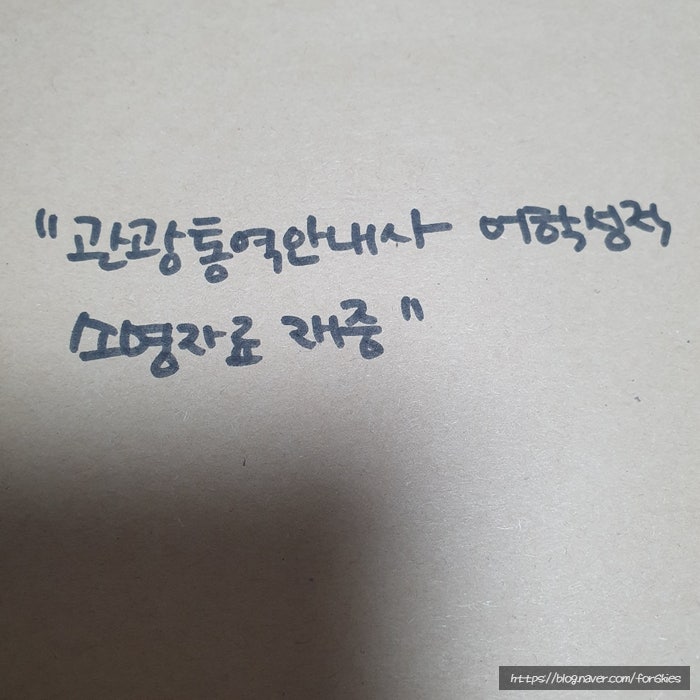 "관광통역안내사 어학성적
소명자료 재중"
https://blog.naver.com/for6kies